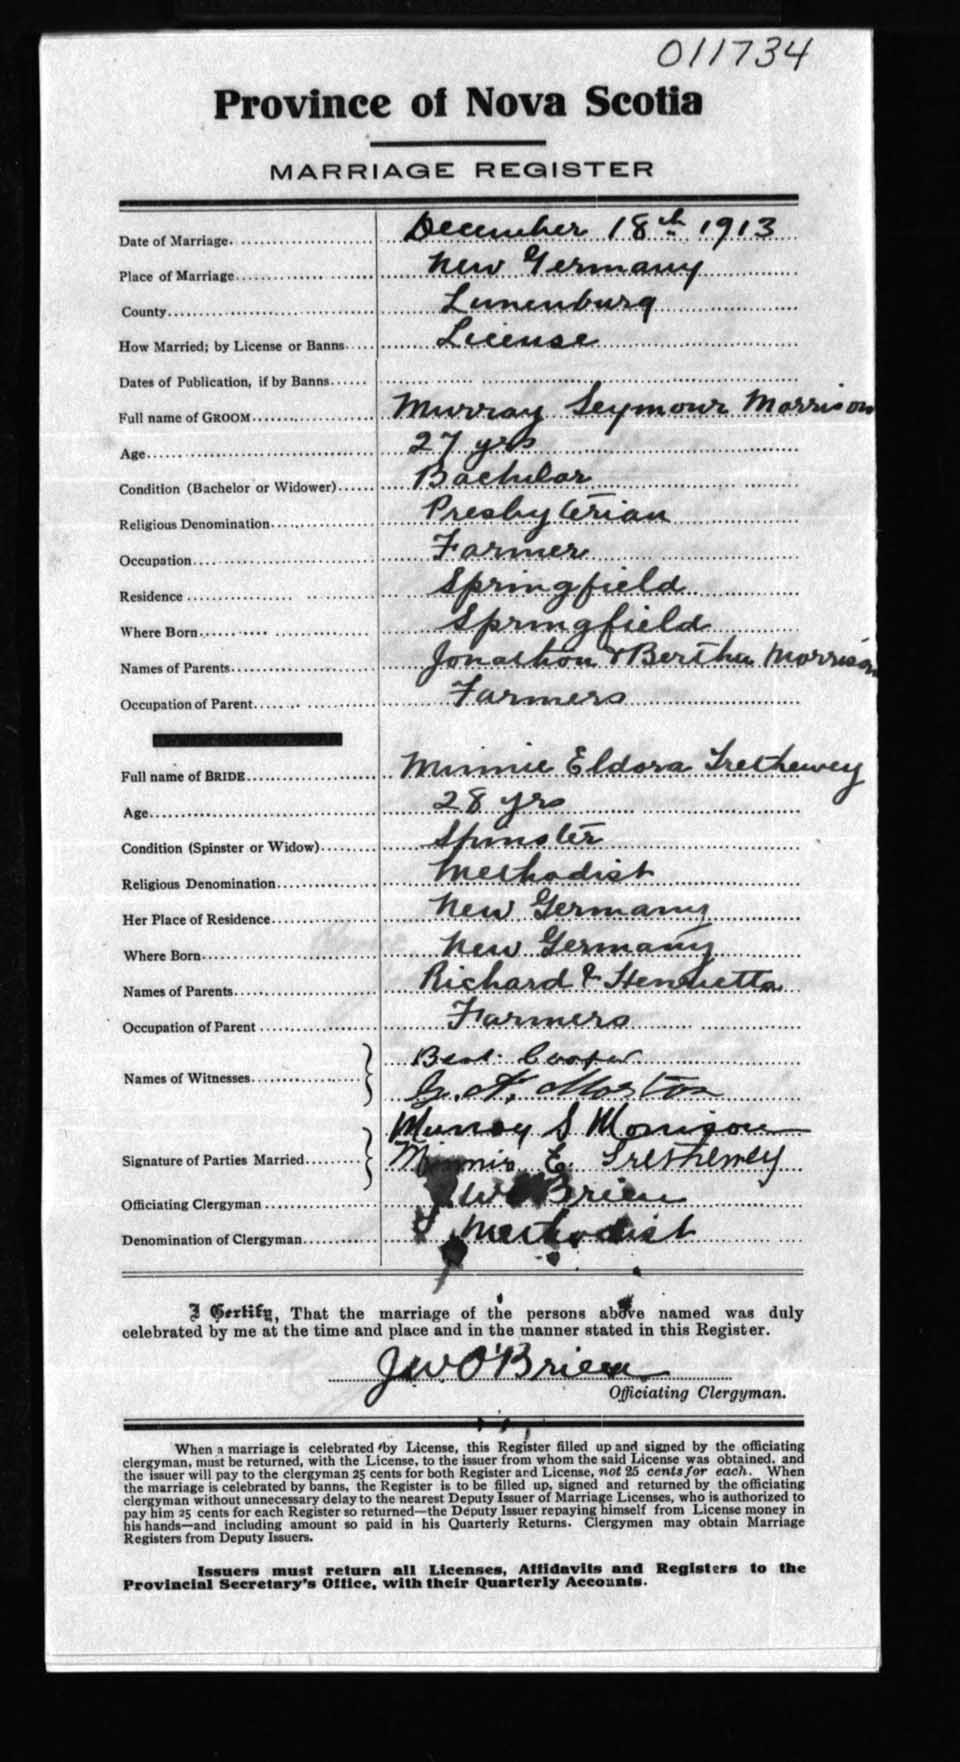 011734
Province of Nova Scotia
MARRIAGE REGISTER
Date of Marriage. December 18th 1913
Place of Marriage New Germany
County Lunenburg
How Married; by License or Banns License
Dates of Publication, if by Banns
Full name of GROOM Murray Seymour Morrison
Age 27 yrs
Condition (Bachelor or Widower) Bachelor
Religious Denomination Presbyterian
Occupation Farmer
Residence Springfield
Where Born Springfield
Names of Parents Jonathon & Bertha Morrison
Occupation of Parent Farmers
Full name of BRIDE Minnie Eldora Trethewey
Age 28 yrs
Condition (Spinster or Widow) Spinster
Religious Denomination Methodist
Her Place of Residence New Germany
Where Born New Germany
Names of Parents Richard & Henrietta
Occupation of Parent Farmers
Names of Witnesses Cooper
G. A. Morton
Murray S Morrison
Signature of Parties Married Minnie E. Trethewey
Officiating Clergyman J W O'Brien
Denomination of Clergyman Methodist
I Certify, That the marriage of the persons above named was duly
celebrated by me at the time and place and in the manner stated in this Register.
J W O'Brien
Officiating Clergyman.
When a marriage is celebrated by License, this Register filled up and signed by the officiating
clergyman, must be returned, with the License, to the issuer from whom the said License was obtained, and
the issuer will pay to the clergyman 25 cents for both Register and License, not 25 cents for each. When
the marriage is celebrated by banns, the Register is to be filled up, signed and returned by the officiating
clergyman without unnecessary delay to the nearest Deputy Issuer of Marriage Licenses, who is authorized to
pay him 25 cents for each Register so returned—the Deputy Issuer repaying himself from License money in
his hands—and including amount so paid in his Quarterly Returns. Clergymen may obtain Marriage
Registers from Deputy Issuers.
Issuers must return all Licenses, Affidavits and Registers to the
Provincial Secretary's Office, with their Quarterly Accounts.